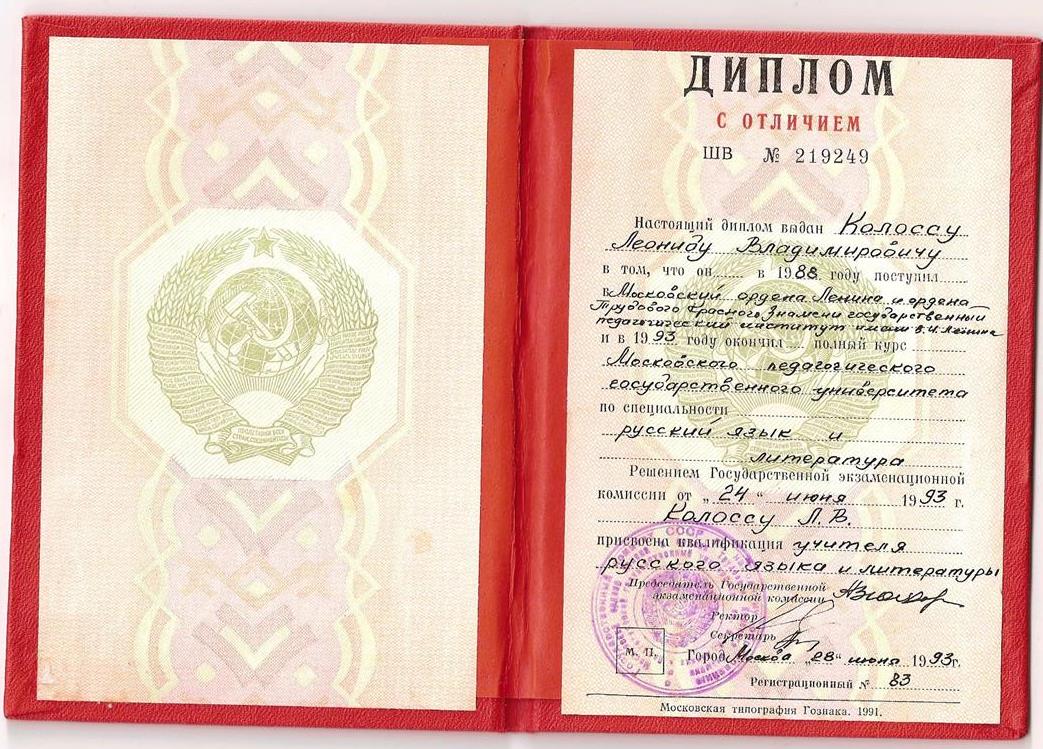 ДИПЛОМ
С ОТЛИЧИЕМ
ШВ № 219249
Настоящий диплом выдан Колоссу
Леониду Владимировичу
в том, что он в 1988 году поступил
в Московский ордена Ленина и ордена
Трудового Красного Знамени государственный
педагогический институт имени В.И. Ленина
и в 1993 году окончил полный курс
Московского педагогического
государственного университета
по специальности
русский язык и
литература
Решением Государственной экзаменационной
комиссии от „24“ июня 1993 г.
Колоссу Л. В.
присвоена квалификация учителя
русского языка и литературы
Председатель Государственной
экзаменационной комиссии
Ректор
Секретарь
М. П.
Город Москва „28“ июня 1993г.
Регистрационный № 83
Московская типография Гознака. 1991.
СССР